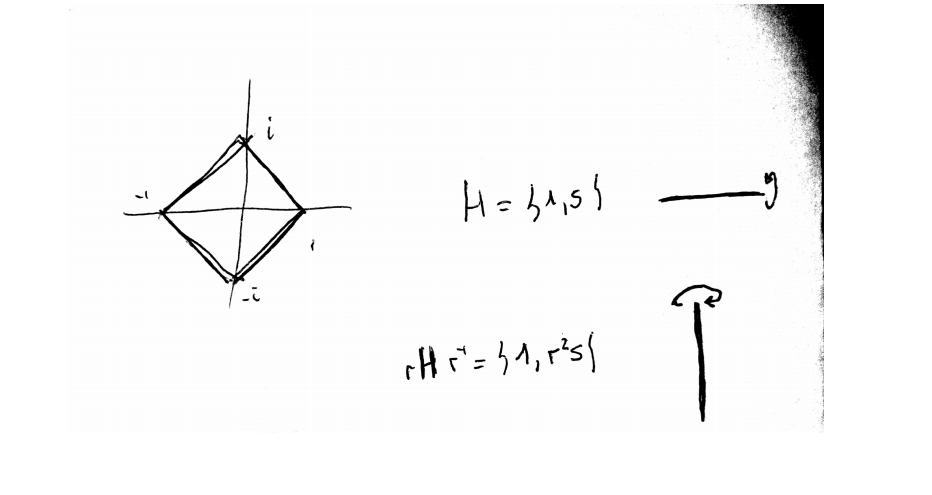 i
-1
1
-i
H = {1, s}
rHr⁻¹ = {1, r²s}